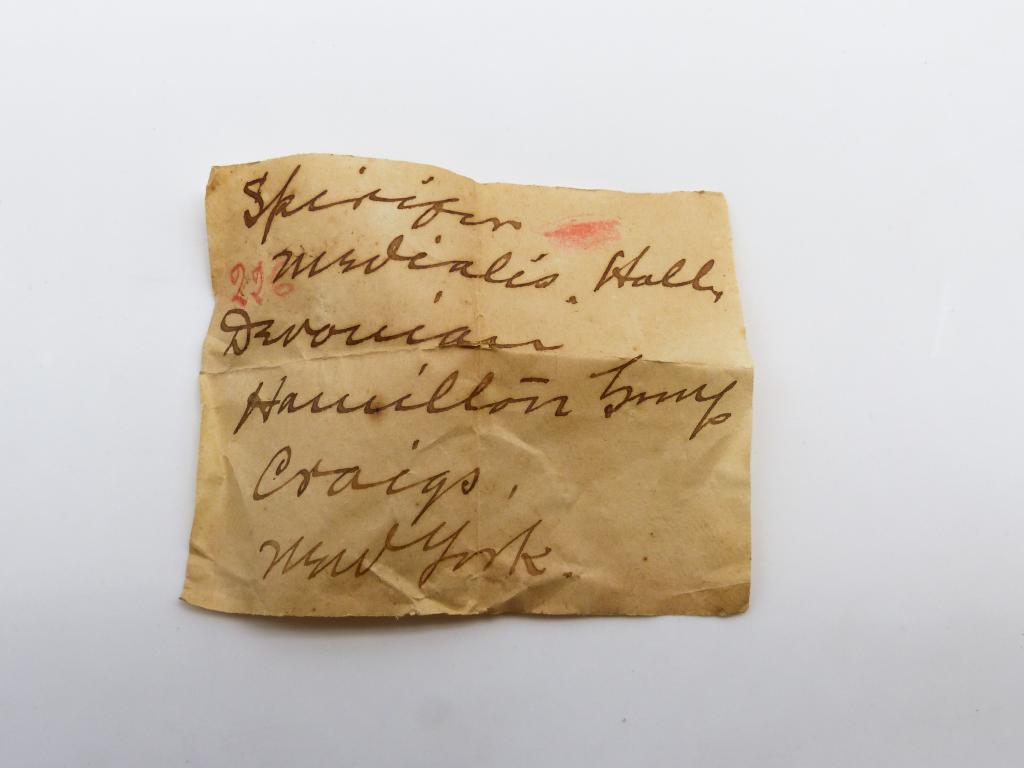 Spirifer
medialis. Hall,
226
Devonian
Hamilton Group
Craigs,
New York.